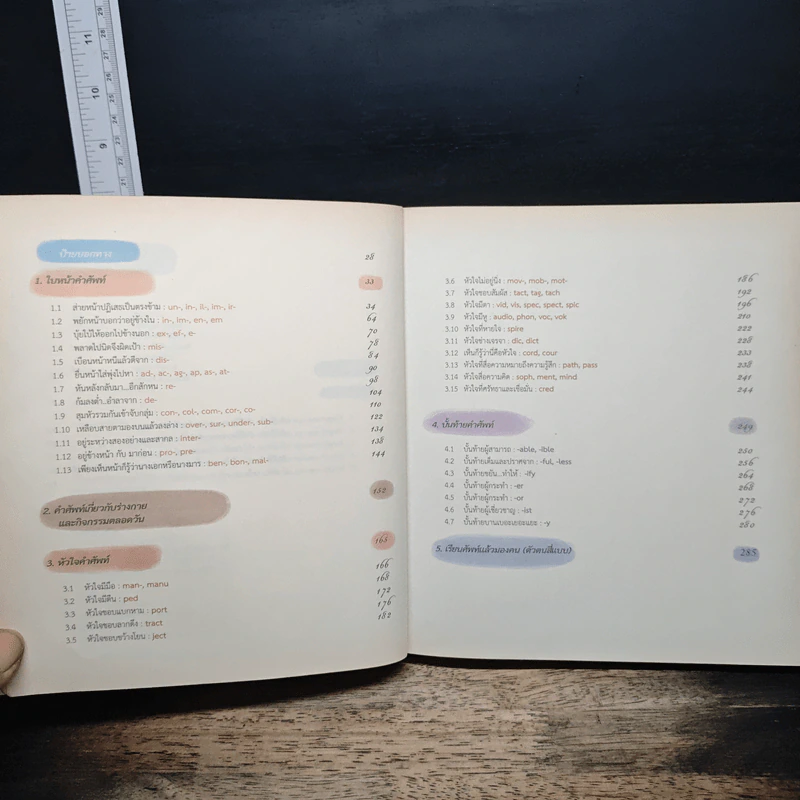 ป้ายบอกทาง 28
1. ใบหน้าคำศัพท์ 33
1.1 ส่ายหน้าปฏิเสธเป็นตรงข้าม : un-, in-, il-, im-, ir- 34
1.2 พยักหน้าบอกว่าอยู่ข้างใน : in-, im-, en-, em 64
1.3 บุ้ยใบ้ให้ออกไปข้างนอก : ex-, ef-, e- 70
1.4 พลาดไปนิดจึงผิดเป้า : mis- 78
1.5 เบือนหน้าหนีแล้วตีจาก : dis- 84
1.6 ยื่นหน้าใส่พุ่งไปหา : ad-, ac-, ag-, ap, as-, at- 90
1.7 หันหลังกลับมา...อีกสักหน : re- 98
1.8 ก้มลงต่ำ..อำลาจาก : de- 104
1.9 สุมหัวรวมกันเข้าจับกลุ่ม : con-, col-, com-, cor-, co- 110
1.10 เหลือบสายตามองบนแล้วลงล่าง : over-, sur-, under-, sub- 122
1.11 อยู่ระหว่างสองอย่างและสากล : inter- 134
1.12 อยู่ข้างหน้า กับ มาก่อน : pro-, pre- 138
1.13 เพียงเห็นหน้าก็รู้ว่านางเอกหรือนางมาร : ben-, bon-, mal- 144
2. คำศัพท์เกี่ยวกับร่างกาย
และกิจกรรมตลอดวัน 152
3. หัวใจคำศัพท์ 165
3.1 หัวใจมีมือ : man-, manu 166
3.2 หัวใจมีตีน : ped 168
3.3 หัวใจชอบแบกหาม : port 172
3.4 หัวใจชอบลากดึง : tract 176
3.5 หัวใจชอบขว้างโยน : ject 182
3.6 หัวใจไม่อยู่นิ่ง : mov-, mob-, mot- 186
3.7 หัวใจชอบสัมผัส : tact, tag, tach 192
3.8 หัวใจมีตา : vid, vis, spec, spect, spic 196
3.9 หัวใจมีหู : audio, phon, voc, vok 210
3.10 หัวใจที่หายใจ : spire 222
3.11 หัวใจช่างเจรจา : dic, dict 228
3.12 เห็นก็รู้ว่านี่คือหัวใจ : cord, cour 233
3.13 หัวใจที่สื่อความหมายถึงความรู้สึก : path, pass 238
3.14 หัวใจสื่อความคิด : soph, ment, mind 241
3.15 หัวใจที่ศรัทธาและเชื่อมั่น : cred 244
4. บั้นท้ายคำศัพท์ 249
4.1 บั้นท้ายผู้สามารถ : -able, -ible 250
4.2 บั้นท้ายเต็มและปราศจาก : -ful, -less 256
4.3 บั้นท้ายขยัน...ทำให้ : -ify 264
4.4 บั้นท้ายผู้กระทำ : -er 268
4.5 บั้นท้ายผู้กระทำ : -or 272
4.6 บั้นท้ายผู้เชี่ยวชาญ : -ist 276
4.7 บั้นท้ายบานเบอะเยอะแยะ : -y 280
5. เรียนศัพท์แล้วมองคน (ตัวคนสี่แบบ) 285
9
10
11